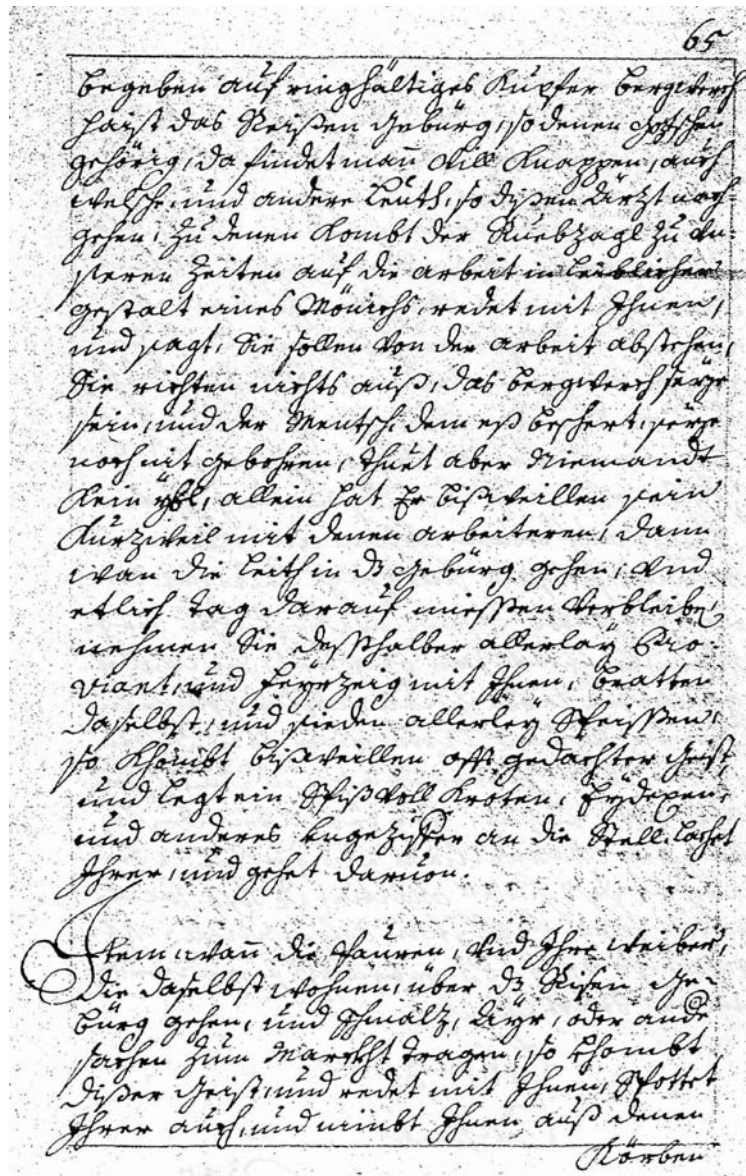 65
begeben auf ringhältiges Kupfer bergwerch
haist das Reißen gebürg, so denen Gotschen
gehörig, da findet mann vill Knappen, auch
welsche, und andere Leuth, so dißen Ärzt nach-
gehen, Zu denen kombt der Ruebzagl zu vn-
seren Zeiten auf die arbeit in leiblicher
gestalt eines Mönichs, redet mit Ihnen,
und sagt, Sie sollen von der arbeit abstehen,
Sie richten nichts auß, das bergwerch seye
sein, und der Mentsch, dem eß beschert, seye
noch nit gebohren, thuet aber Niemandt
kein ybl, allein hat Er bißweillen sein
Kurzweil mit denen arbeiteren, dann
wan die Leith in dz gebürg gehen, vnd
etlich tag darauf miessen verbleiben,
nehmen Sie desshalber allerlay Pro-
viant, und feyrzeig mit Ihnen, bratten
daselbst, und sieden allerley Speissen,
so khombt bißweillen offt gedachter geist,
und legt ein Spiß voll Kroten, Eydexen,
und anderes vngezifer an die Stell, lachet
Ihrer, und gehet daruon.
Item wann die Pauren, vnd Ihre weiber,
die daselbst wohnen, über dz Risen ge-
bürg gehen, und schmalz, Ayr, oder ande
sachen zum Marckht tragen, so khombt
dißer geist, und redet mit Ihnen, Spottet
Ihrer auch, und nimbt Ihnen auß denen
Körben